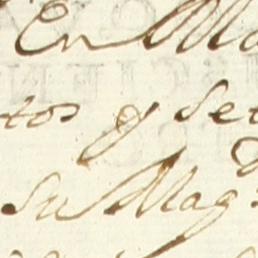 En Ma
tos y Set
Su Mag.